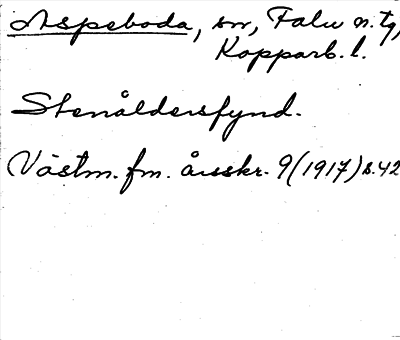 Aspeboda, sn, Falu n. tg,
Kopparb. l.
Stenåldersfynd.
Västm. fm. årsskr. 9(1917) s. 42